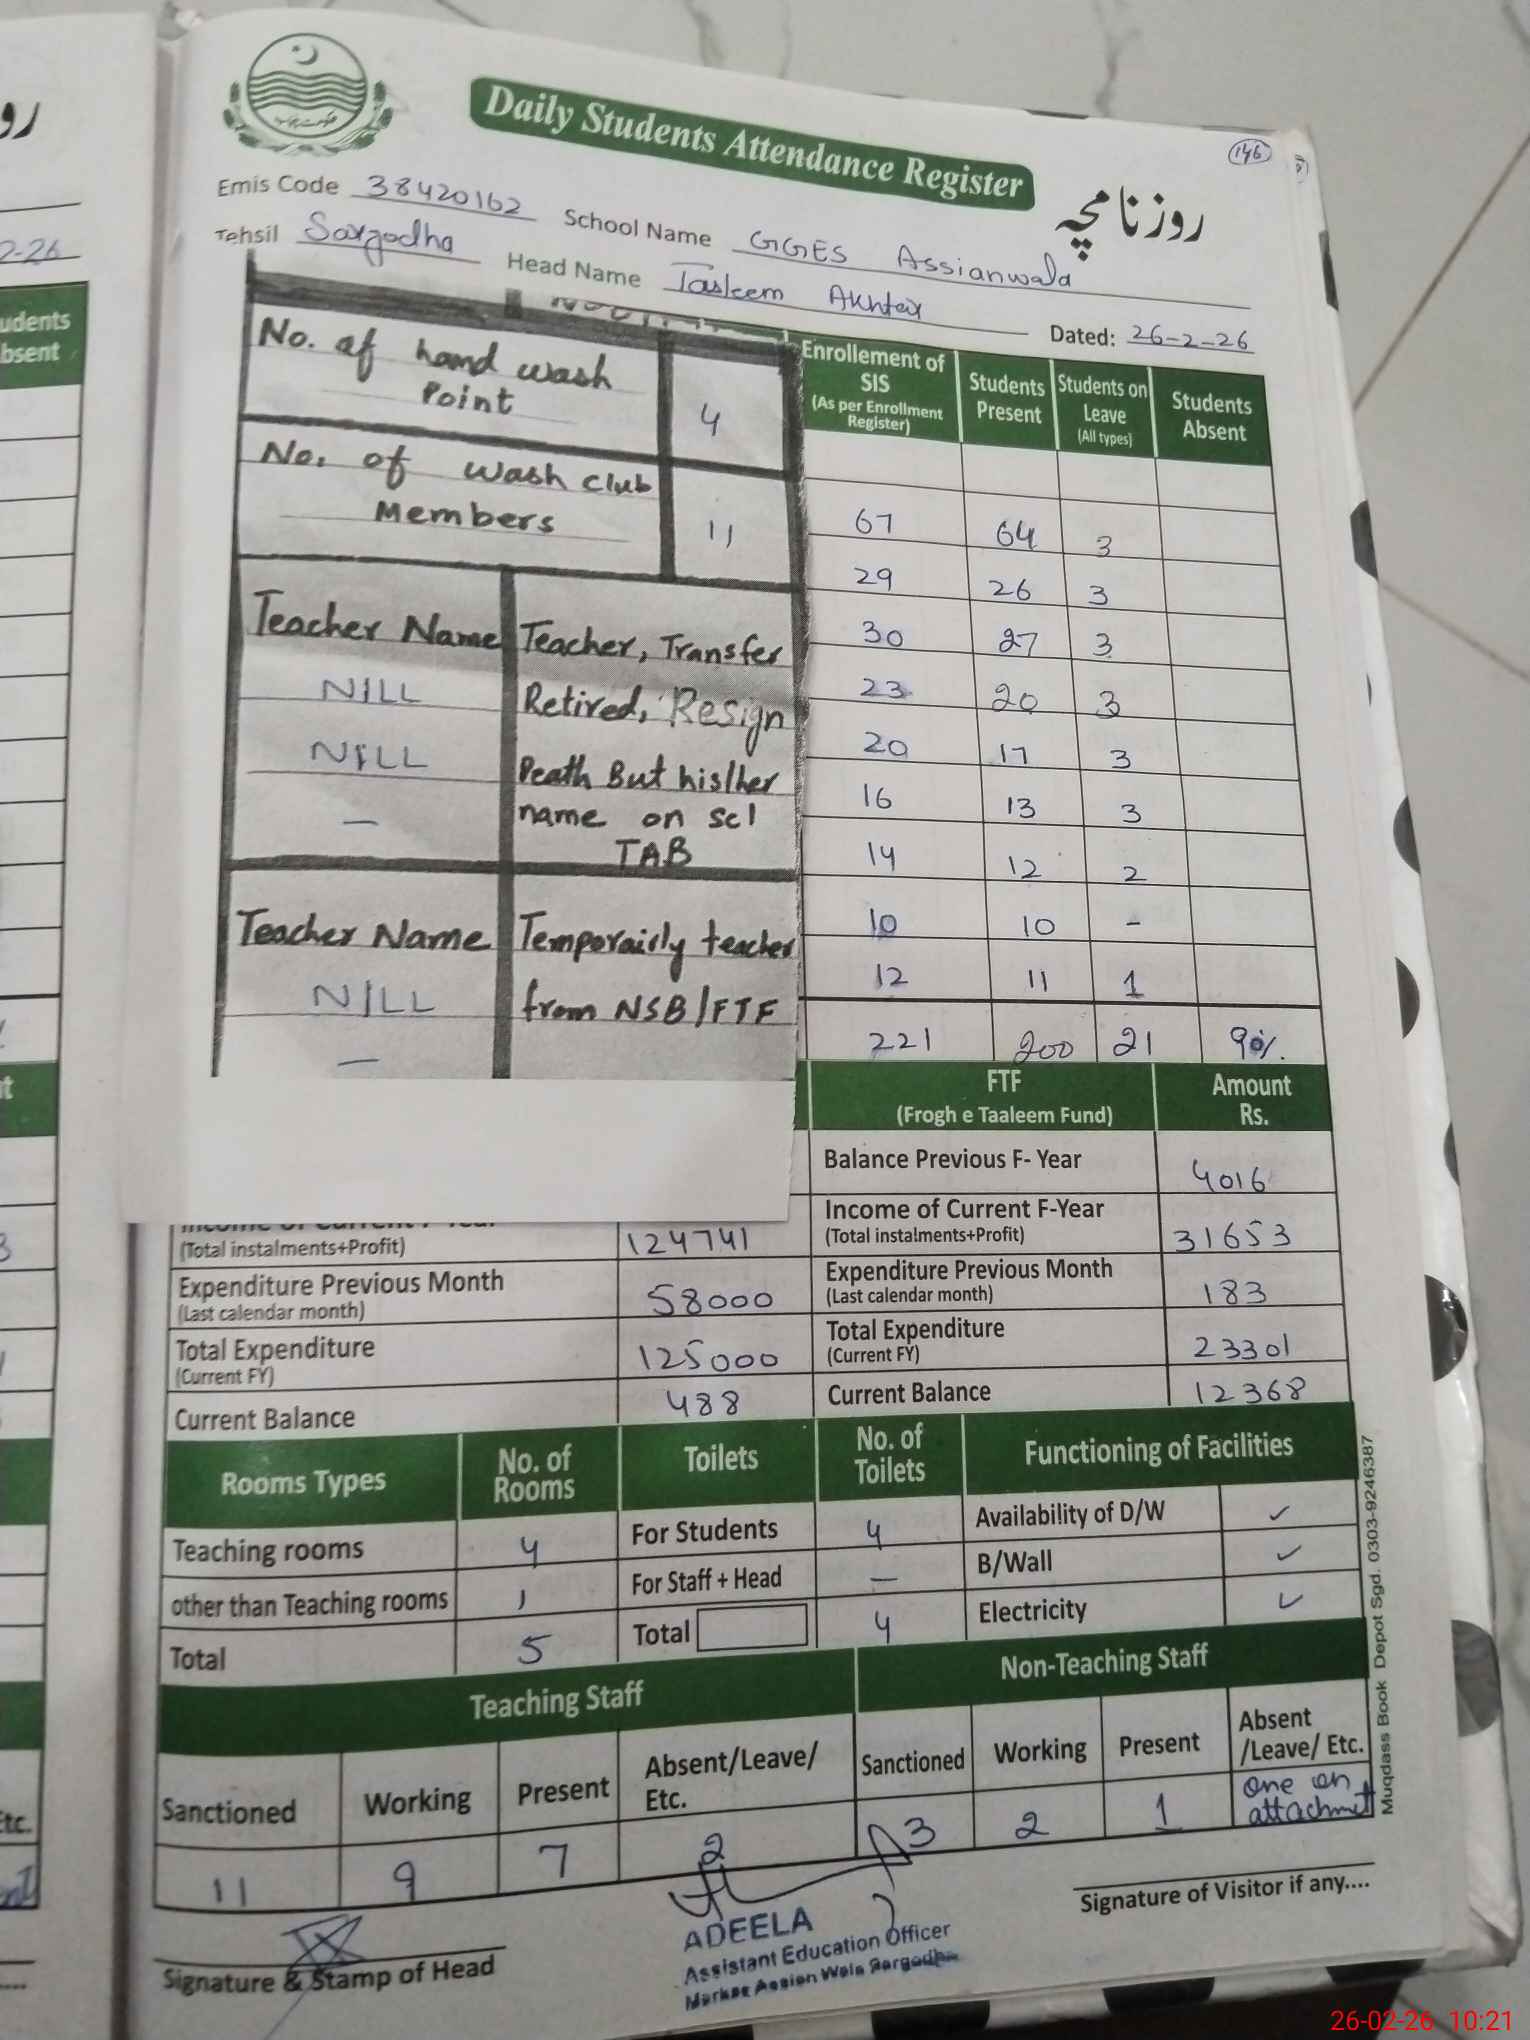 Daily Students Attendance Register
146
روزنامچہ
Emis Code 38420162 School Name GGES Assianwala
Tehsil Sargodha Head Name Tasleem Akhtar
Dated: 26-2-26
2-26
udents
bsent
No. af hand wash Point 4
No. of wash club Members 11
Teacher Name Teacher, Transfer
NILL Retired, Resign
NILL Death But his/her
— name on scl
TAB
Teacher Name Temporairly teacher
NILL from NSB/FTF
—
Enrollement of SIS (As per Enrollment Register) Students Present Students on Leave (All types) Students Absent
67 64 3
29 26 3
30 27 3
23 20 3
20 17 3
16 13 3
14 12 2
10 10 -
12 11 1
221 200 21 90%
FTF (Frogh e Taaleem Fund) Amount Rs.
Balance Previous F- Year 4016
(Total instalments+Profit) 124741 Income of Current F-Year (Total instalments+Profit) 31653
Expenditure Previous Month (Last calendar month) 58000 Expenditure Previous Month (Last calendar month) 183
Total Expenditure (Current FY) 125000 Total Expenditure (Current FY) 23301
Current Balance 488 Current Balance 12368
Rooms Types No. of Rooms Toilets No. of Toilets Functioning of Facilities
Teaching rooms 4 For Students 4 Availability of D/W ✓
other than Teaching rooms 1 For Staff + Head — B/Wall ✓
Total 5 Total 4 Electricity ✓
Teaching Staff Non-Teaching Staff
Sanctioned Working Present Absent/Leave/ Etc. Sanctioned Working Present Absent /Leave/ Etc.
11 9 7 2 3 2 1 one on attachmet
Signature & Stamp of Head
ADEELA
Assistant Education Officer
Markaz Assian Wala Sargodha
Signature of Visitor if any....
Muqdass Book Depot Sgd. 0303-9246387
26-02-26 10:21